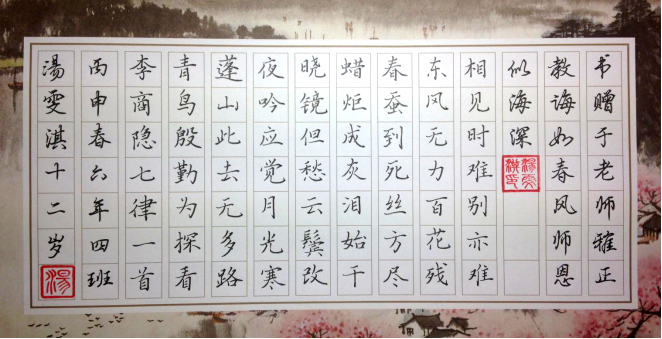 书赠于老师雅正
教诲如春风师恩
似海深
湯雯淇印
相见时难别亦难
东风无力百花残
春蚕到死丝方尽
蜡炬成灰泪始干
晓镜但愁云鬓改
夜吟应觉月光寒
蓬山此去无多路
青鸟殷勤为探看
李商隐七律一首
丙申春六年四班
湯雯淇十二岁
湯